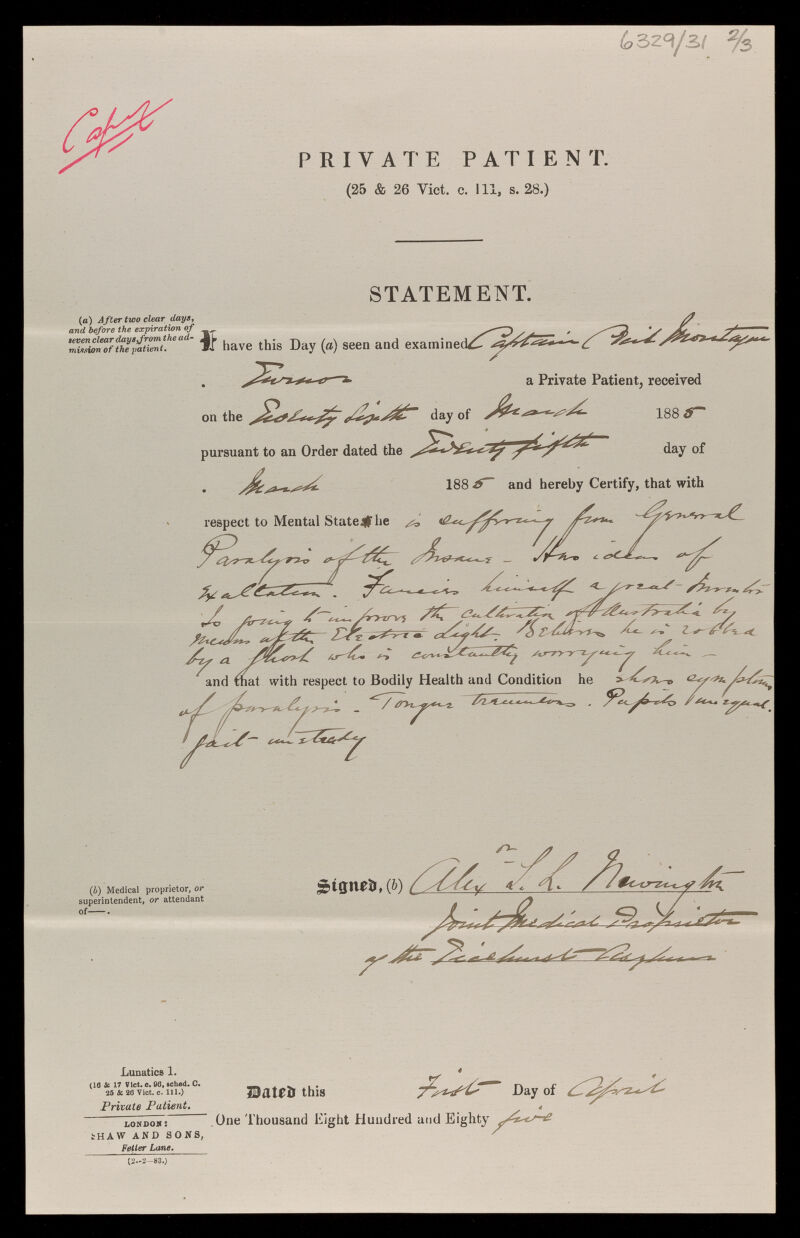 6329/31 2/3
PRIVATE PATIENT.
(25 & 26 Vict. c. 111, s. 28.)
STATEMENT.
(a) After two clear days,
and before the expiration of
seven clear days, from the ad-
mission of the patient.
I have this Day (a) seen and examined Captain Montague
Turnor a Private Patient, received
on the Twenty sixth day of March 1885
pursuant to an Order dated the Twenty fifth day of
March 1885 and hereby Certify, that with
respect to Mental State he is suffering from General
Paralysis of the Insane - Has ideas of
exaltation. Fancies himself a great Inventor
Is going to improve the cultivation of Australia by
means of the Electric Light. Believes he is robbed
by a Ghost who is constantly worrying him -
and that with respect to Bodily Health and Condition he shows symptoms
of paralysis - Tongue tremulous. Pupils unequal.
Gait unsteady
Signed, (b) Alexr S. L. Newington
(b) Medical proprietor, or
superintendent, or attendant
of——.
Joint Medical Proprietor
of the Ticehurst Asylum
Lunatics 1.
(16 & 17 Vict. c. 96, sched. C.
25 & 26 Vict. c. 111.)
Private Patient.
LONDON:
SHAW AND SONS,
Fetter Lane.
(2--2--83.)
Dated this First Day of April
One Thousand Eight Hundred and Eighty five